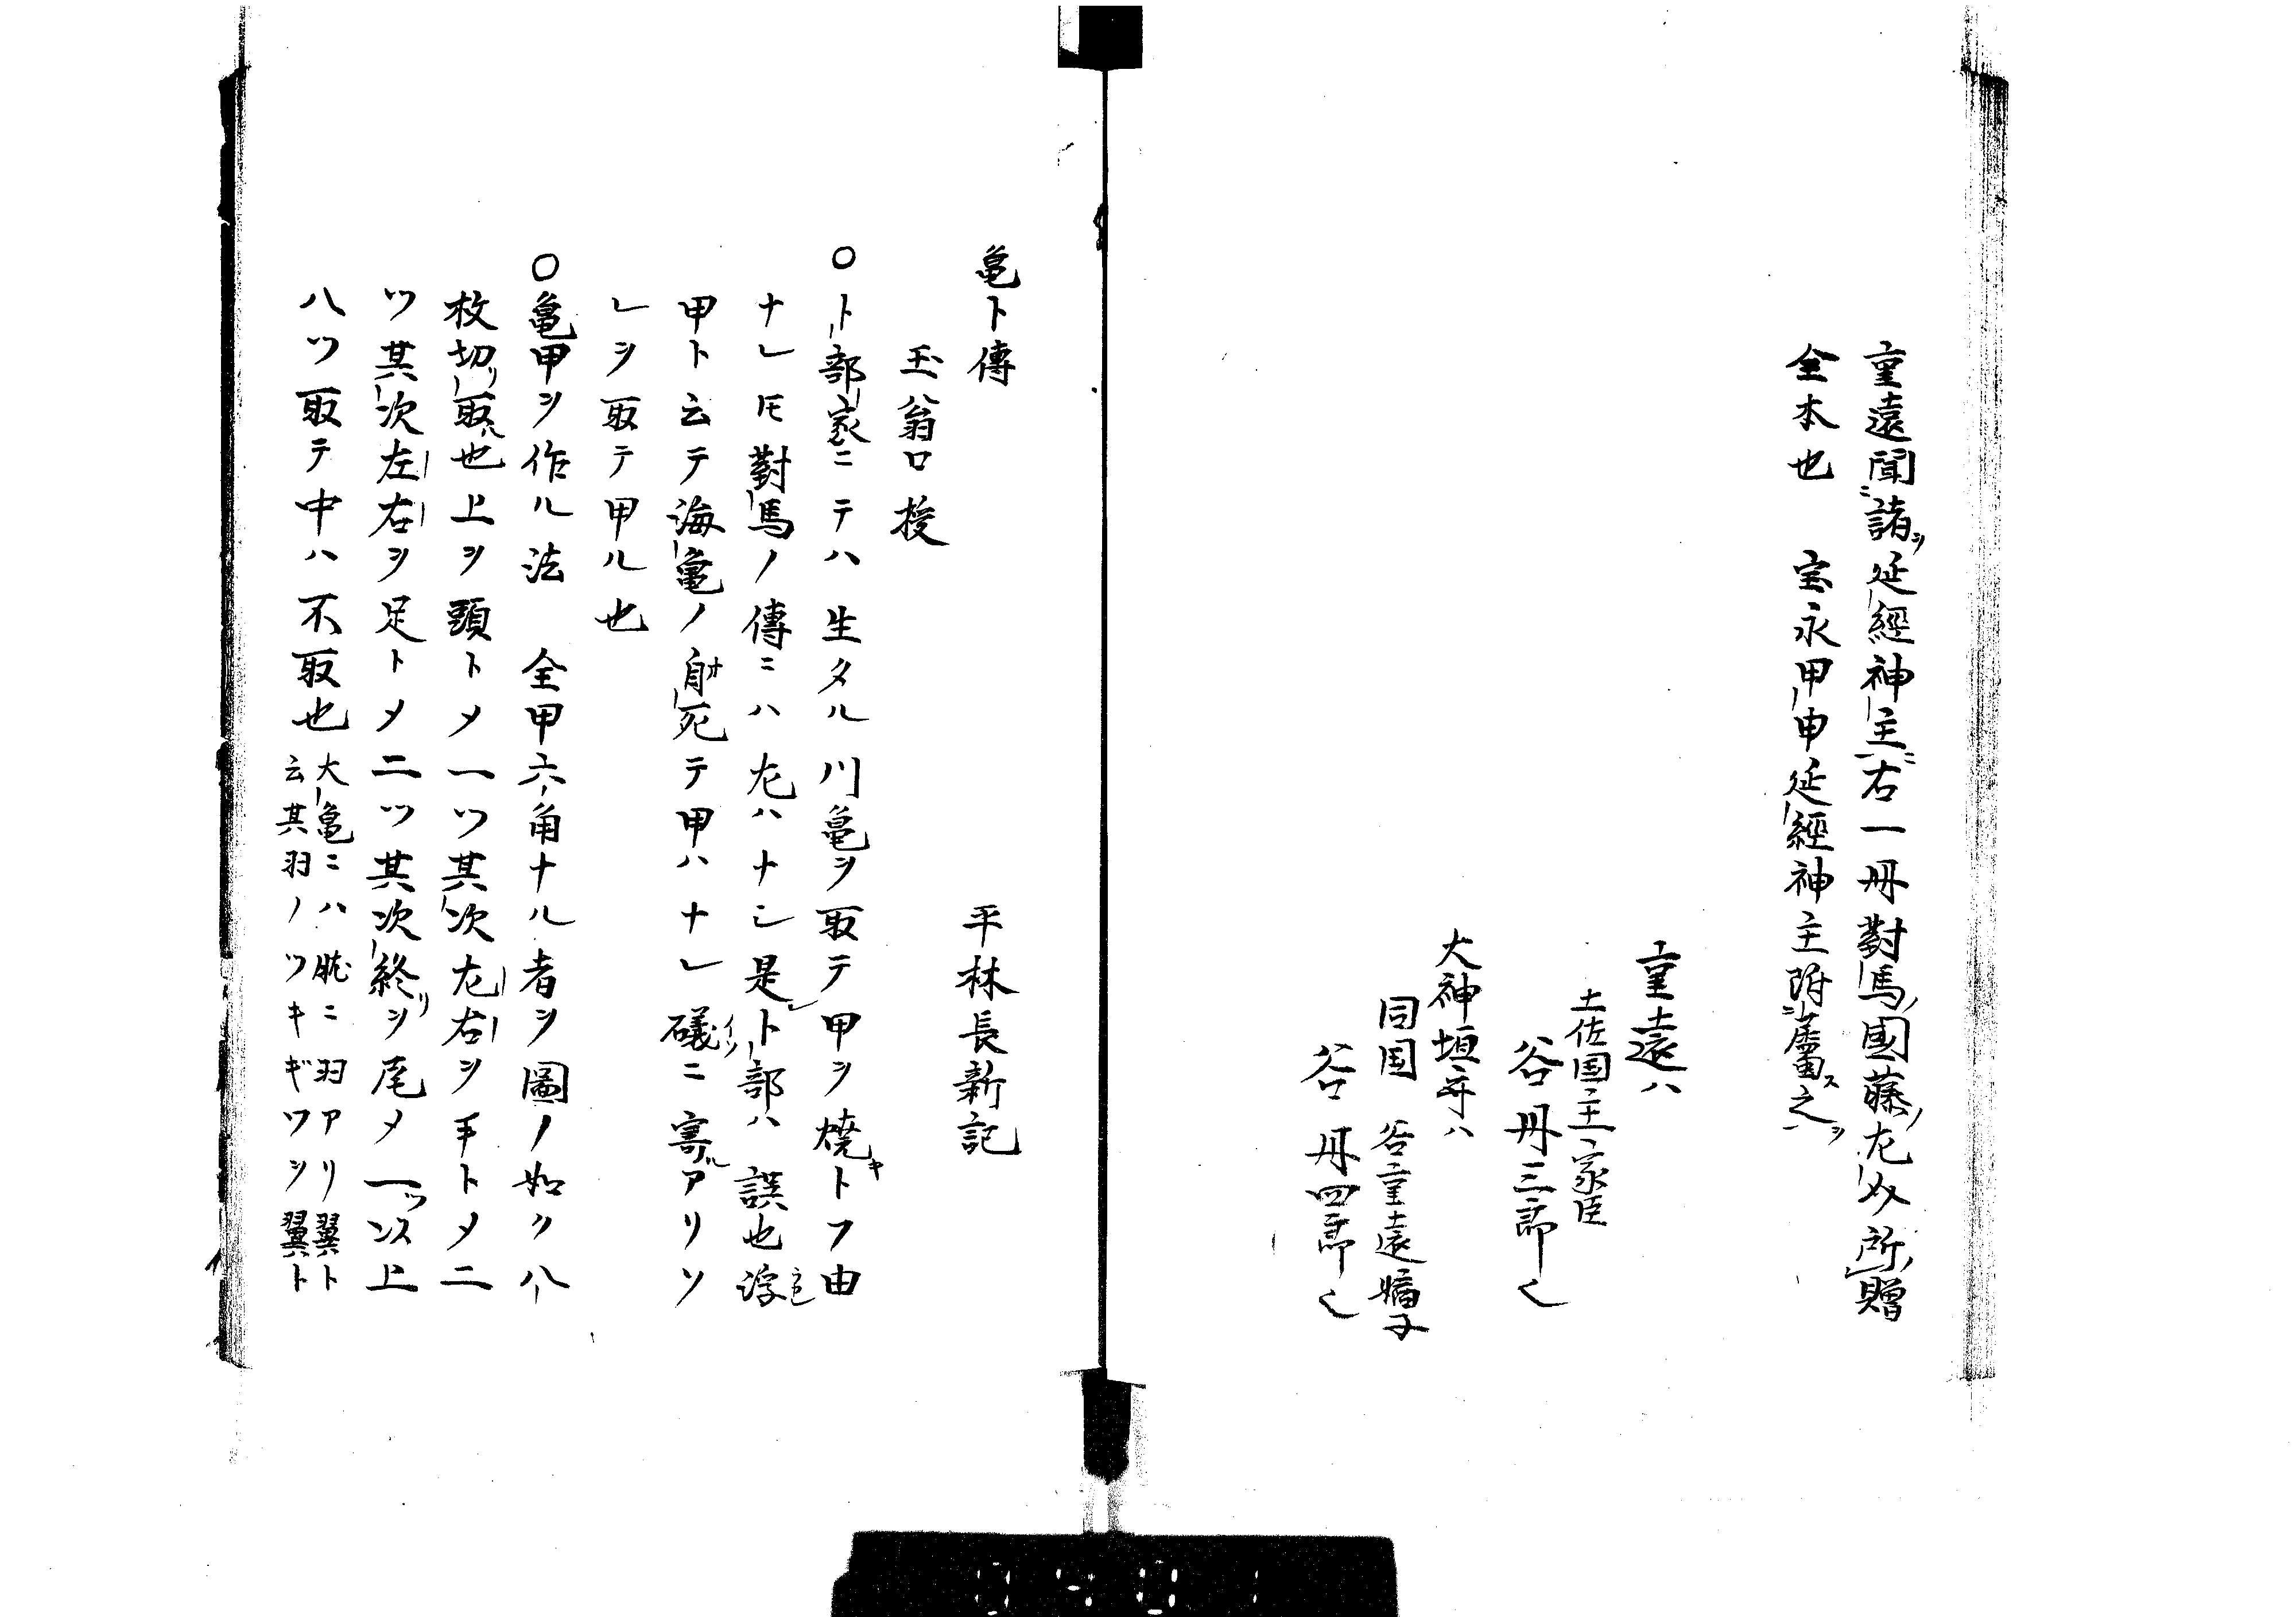 重遠聞諸延經神主右一冊對馬國藤左内所贈
全本也　宝永甲申延經神主附属之
重遠ハ
土佐国主家臣
谷丹三郎
大神垣守ハ
同国　谷重遠嫡子
谷丹四郎
亀卜傳
平林長新記
玉翁口授
○卜部家ニテハ生タル川亀ヲ取テ甲ヲ焼トフ由
ナレ𪜈對馬ノ傳ニハ左ハナシ是卜部ハ誤也浮
甲ト云テ海亀ノ自死テ甲ハナレ礒ニ寄アリソ
レヲ取テ甲ル也
○亀甲ヲ作ル法　全甲六角ナル者ヲ圖ノ如ク八
枚切取也上ヲ頭トメ一ツ其次左右ヲ手トメ二
ツ其次左右ヲ足トメ二ツ其次終ヲ尾メ一ツス上
八ツ取テ中ハ不取也
大亀ニハ肬ニ羽アリ翼ト
云其羽ノツキギワヲ翼ト